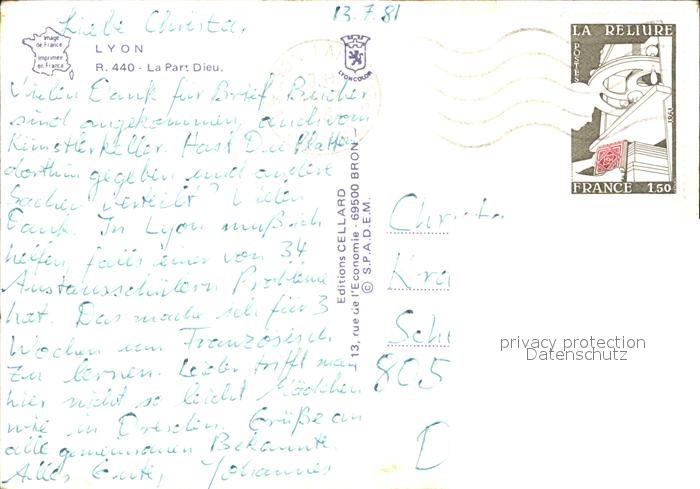 13.7.81
Liebe Christa,
Image
de France
Imprimée
en France
LYON
R. 440 - La Part Dieu.
LYONCOLOR
Vielen Dank für Brief. Bücher
sind angekommen, auch vom
Künstlerkeller. Hast Du Platten
dorthin gegeben und andere
Sachen verteilt? Vielen
Dank. In Lyon muß ich
helfen, falls einer von 34
Austauschschülern Probleme
hat. Das mache ich für 3
Wochen um Französisch
zu lernen. Leider trifft man
hier nicht so leicht Mädchen
wie in Dresden. Grüße an
alle gemeinsamen Bekannte.
Alles Gute, Johannes
Editions CELLARD
13, rue de l'Economie - 69500 BRON -
© S.P.A.D.E.M.
LA RELIURE
POSTES
1981
FRANCE 1.50
Christa
Kra
Sch
805
D
privacy protection
Datenschutz